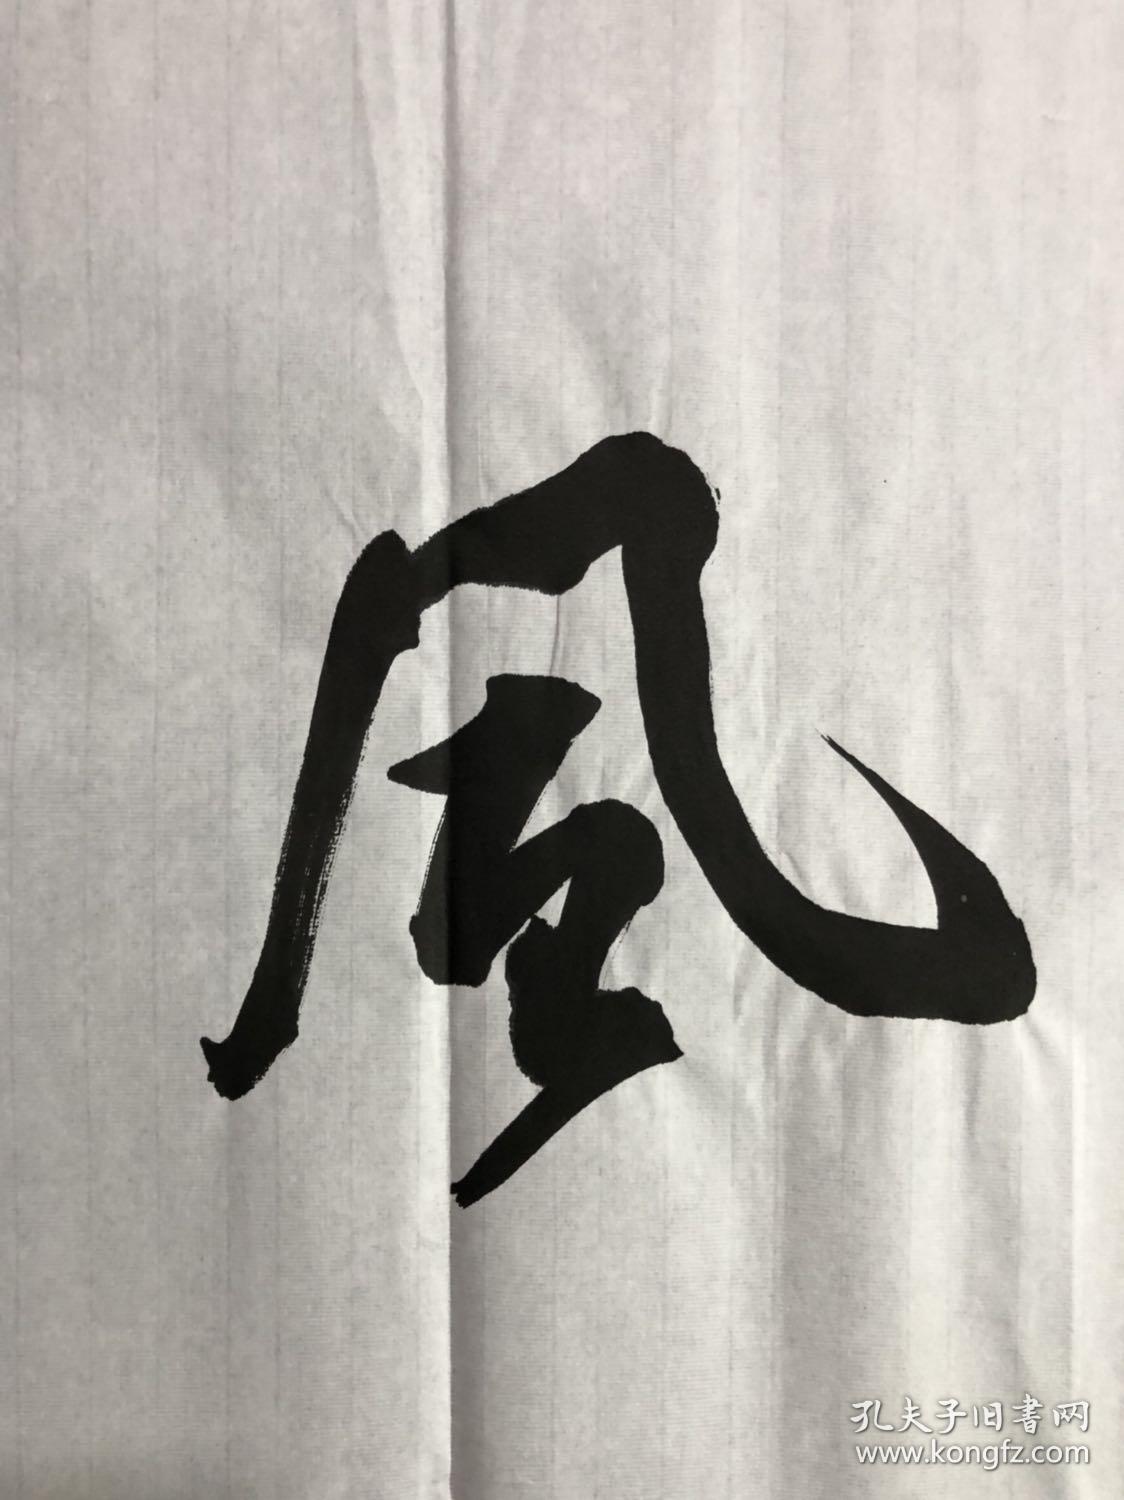 風
孔夫子旧書网
www.kongfz.com